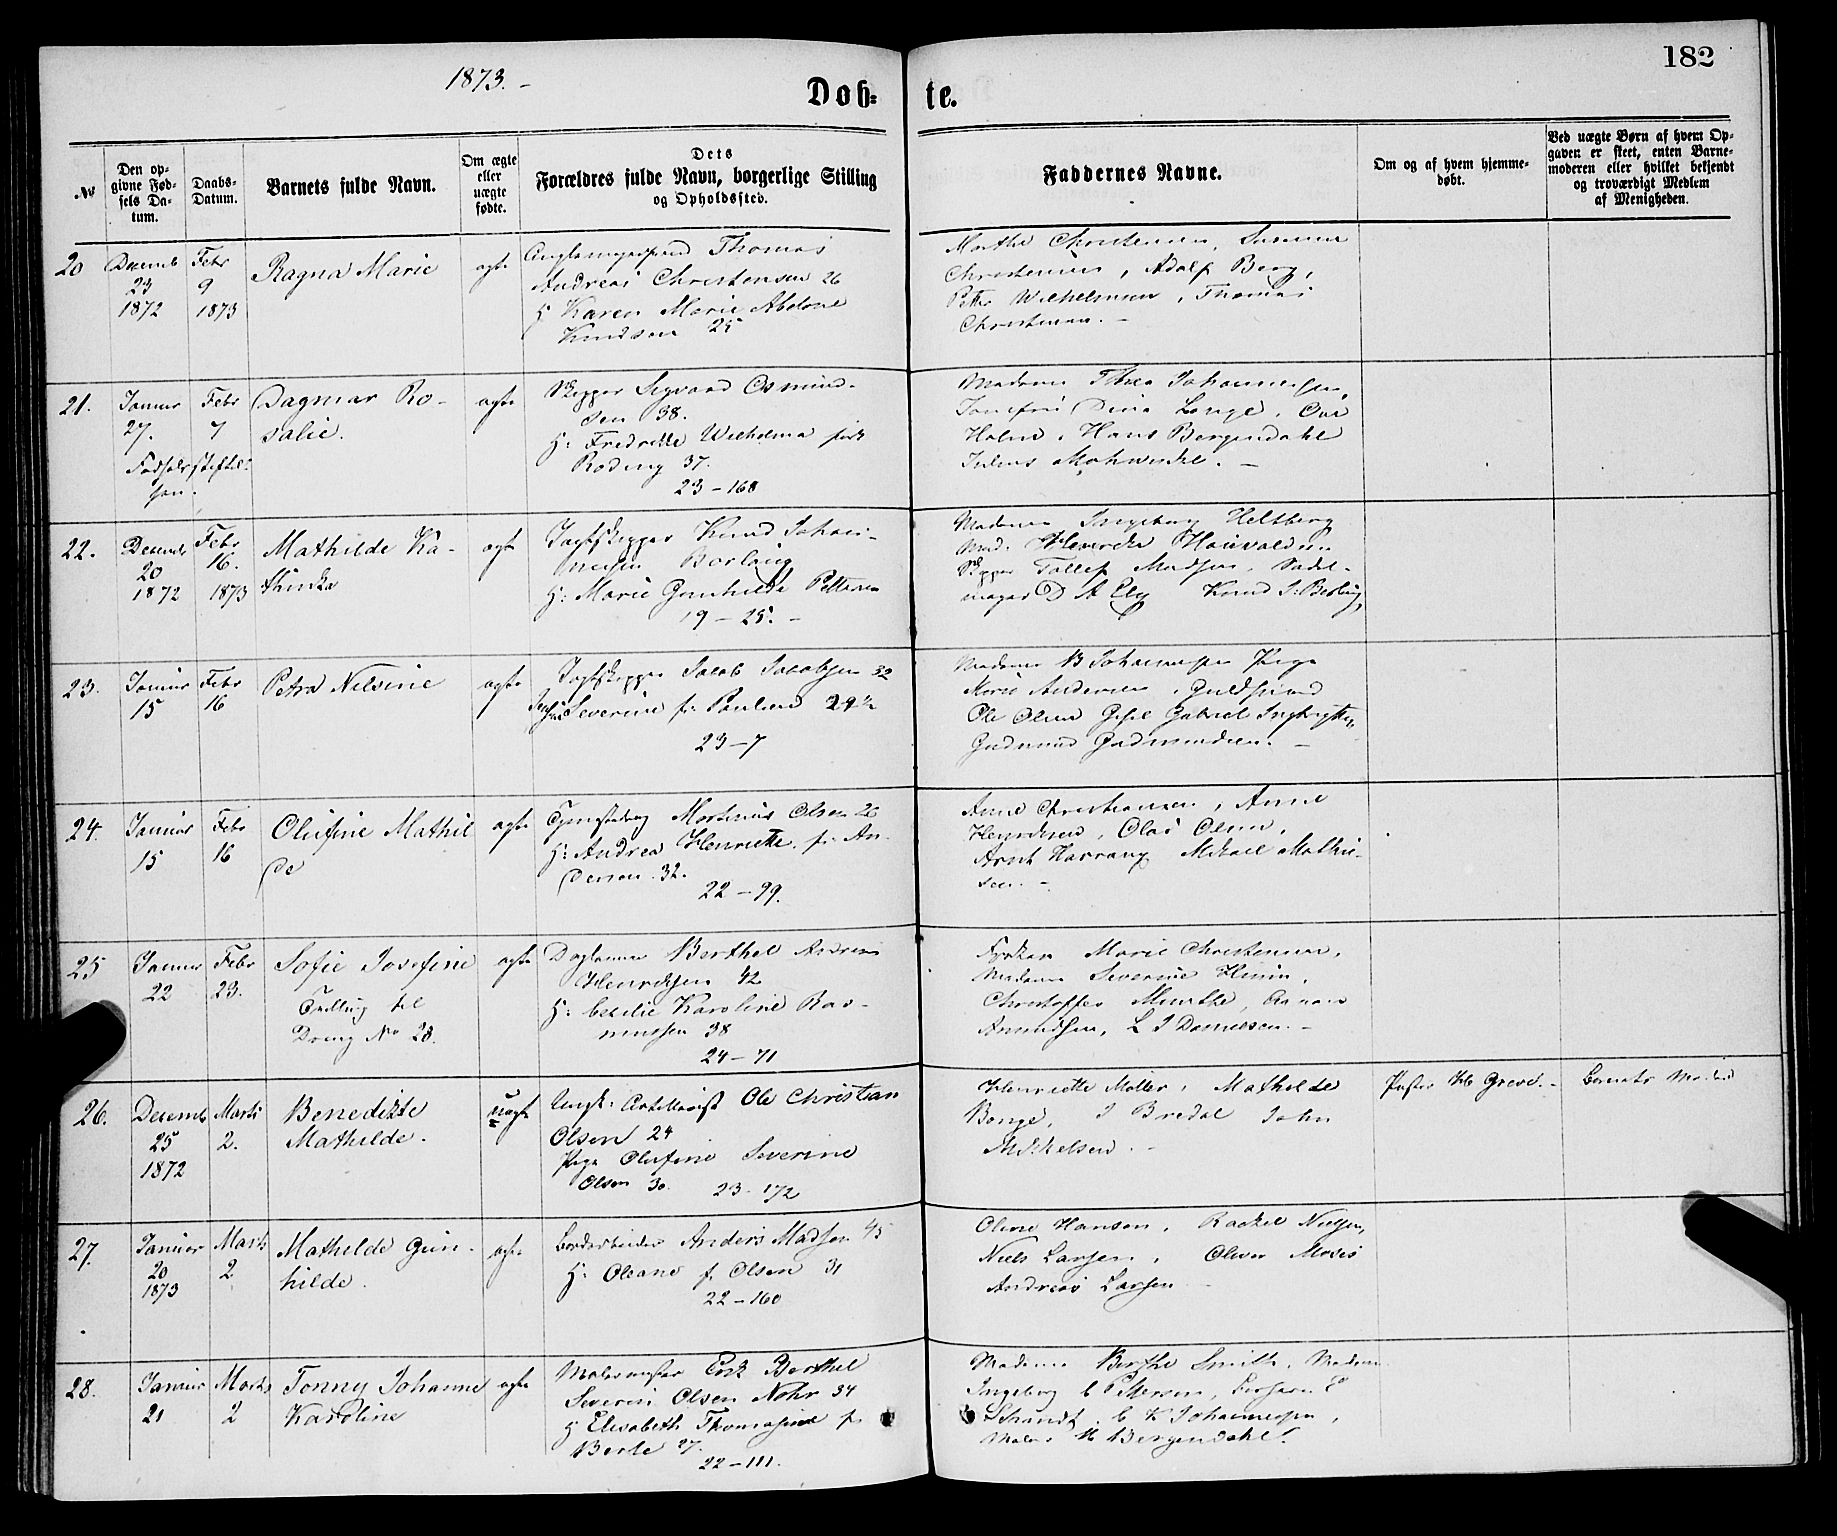 1873. -
182
Døb= te.
No
Den op-
givne Fød-
sels Da-
tum.
Daabs-
Datum.
Barnets fulde Navn.
Om ægte
eller
uægte
fødte.
Dets
Forældres fulde Navn, borgerlige Stilling
og Opholdssted.
Faddernes Navne.
Om og af hvem hjemme-
døbt.
Ved uægte Børn af hvem Op-
gaven er skeet, enten Barne-
moderen eller hvilket bekjendt
og troværdigt Medlem
af Menigheden.
20
Decemb
23
1872
Febr
9
1873
Ragna Marie
ægte
Thomas
Andreas Christensen 26
H Karen Marie Abelone
Knudsen 25
Marthe Christensen,
Christensen, Adolf Berg,
Petter Wilhelmsen, Thomas
Christensen. -
21.
Januar
27.
Febr
7
Fødselsstiftel-
sen.
Dagmar Ro-
salie.
ægte
Skipper Sigvard Osmund-
sen 38.
H: Fredrikke Wilhelmina født
Roding 37.
23-168
Madame Thea Johannessen,
Jomfru Dina Lange,
Holm, Hans Bergendahl
Julius Mohwinkel. -
22.
Decemb
20
1872
Febr
16.
1873
Mathilde Ka-
thinka
ægte
Jagtskipper Knud Johan-
nesen Borlaug
H: Marie Gunhilde Pettersen
19-25. -
Madame Ingeborg Heltberg
Mad.
Skipper Tollef Madsen, Sadel-
mager D A Ely Knud J: Borlaug,
23.
Januar
15
Febr
16
Petra Nilsine
ægte
Jagtskipper Jacob Jacobsen 32
Severine f: Paulsen 29½
23-7
Madame B Johannessen Pige
Marie Andersen, Guldsmed
Ole Olsen Gesel Gabriel
Gudmund Gudmundsen. -
24.
Januar
15
Febr
16
Olufine Mathil
de
ægte
Mortinus Olsen 26
H: Andrea Henriette f: An-
dersen. 32.
22-99.
Anne Christiansen, Anne
Henriksen, Olai Olsen,
Arnt Mikael Mathie-
sen. -
25
Januar
22
Febr
23.
Sofie Josefine
Tvilling til
Dreng No 28.
ægte
Berthel Andreas
Henriksen 42
H: Cecilie Karoline Ras-
mussen 38
24-71
Marie Christensen,
Madame Severine
Christoffer Munthe,
Amundsen, L J Danielsen. -
26.
Decemb
25
1872
Marts
2.
Benedikte
Mathilde.
uægte
Ungk: Artillerist Ole Christian
Olsen 24
Pige Olufine Severine
Olsen 30. 23-172
Henriette Møller, Mathilde
Bonge, J Bredal John
Mikkelsen. -
Barnets Moder
27.
Januar
20
1873
Marts
2
Mathilde Gun-
hilde.
ægte
Anders Madsen 45
H: Oleane f. Olsen 31
22-160
Oline Hansen, Rachel Nielsen,
Niels Larsen, Oliver Moses
Andreas Larsen
28.
Januar
21
Marts
2
Tonny Johanne
Karoline
ægte
Malermester Erik Berthel
Severin Olsen Nohr 34
H Elisabeth Thomasine f:
Berle 27.
22-111.
Madame Berthe Smith, Madam
Ingeborg C Pettersen,
Strandt, C K Johannessen,
Maler H Bergendahl.